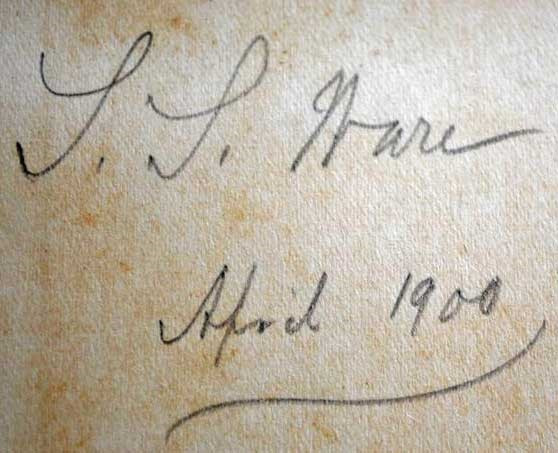 S. S. Ware
April 1900